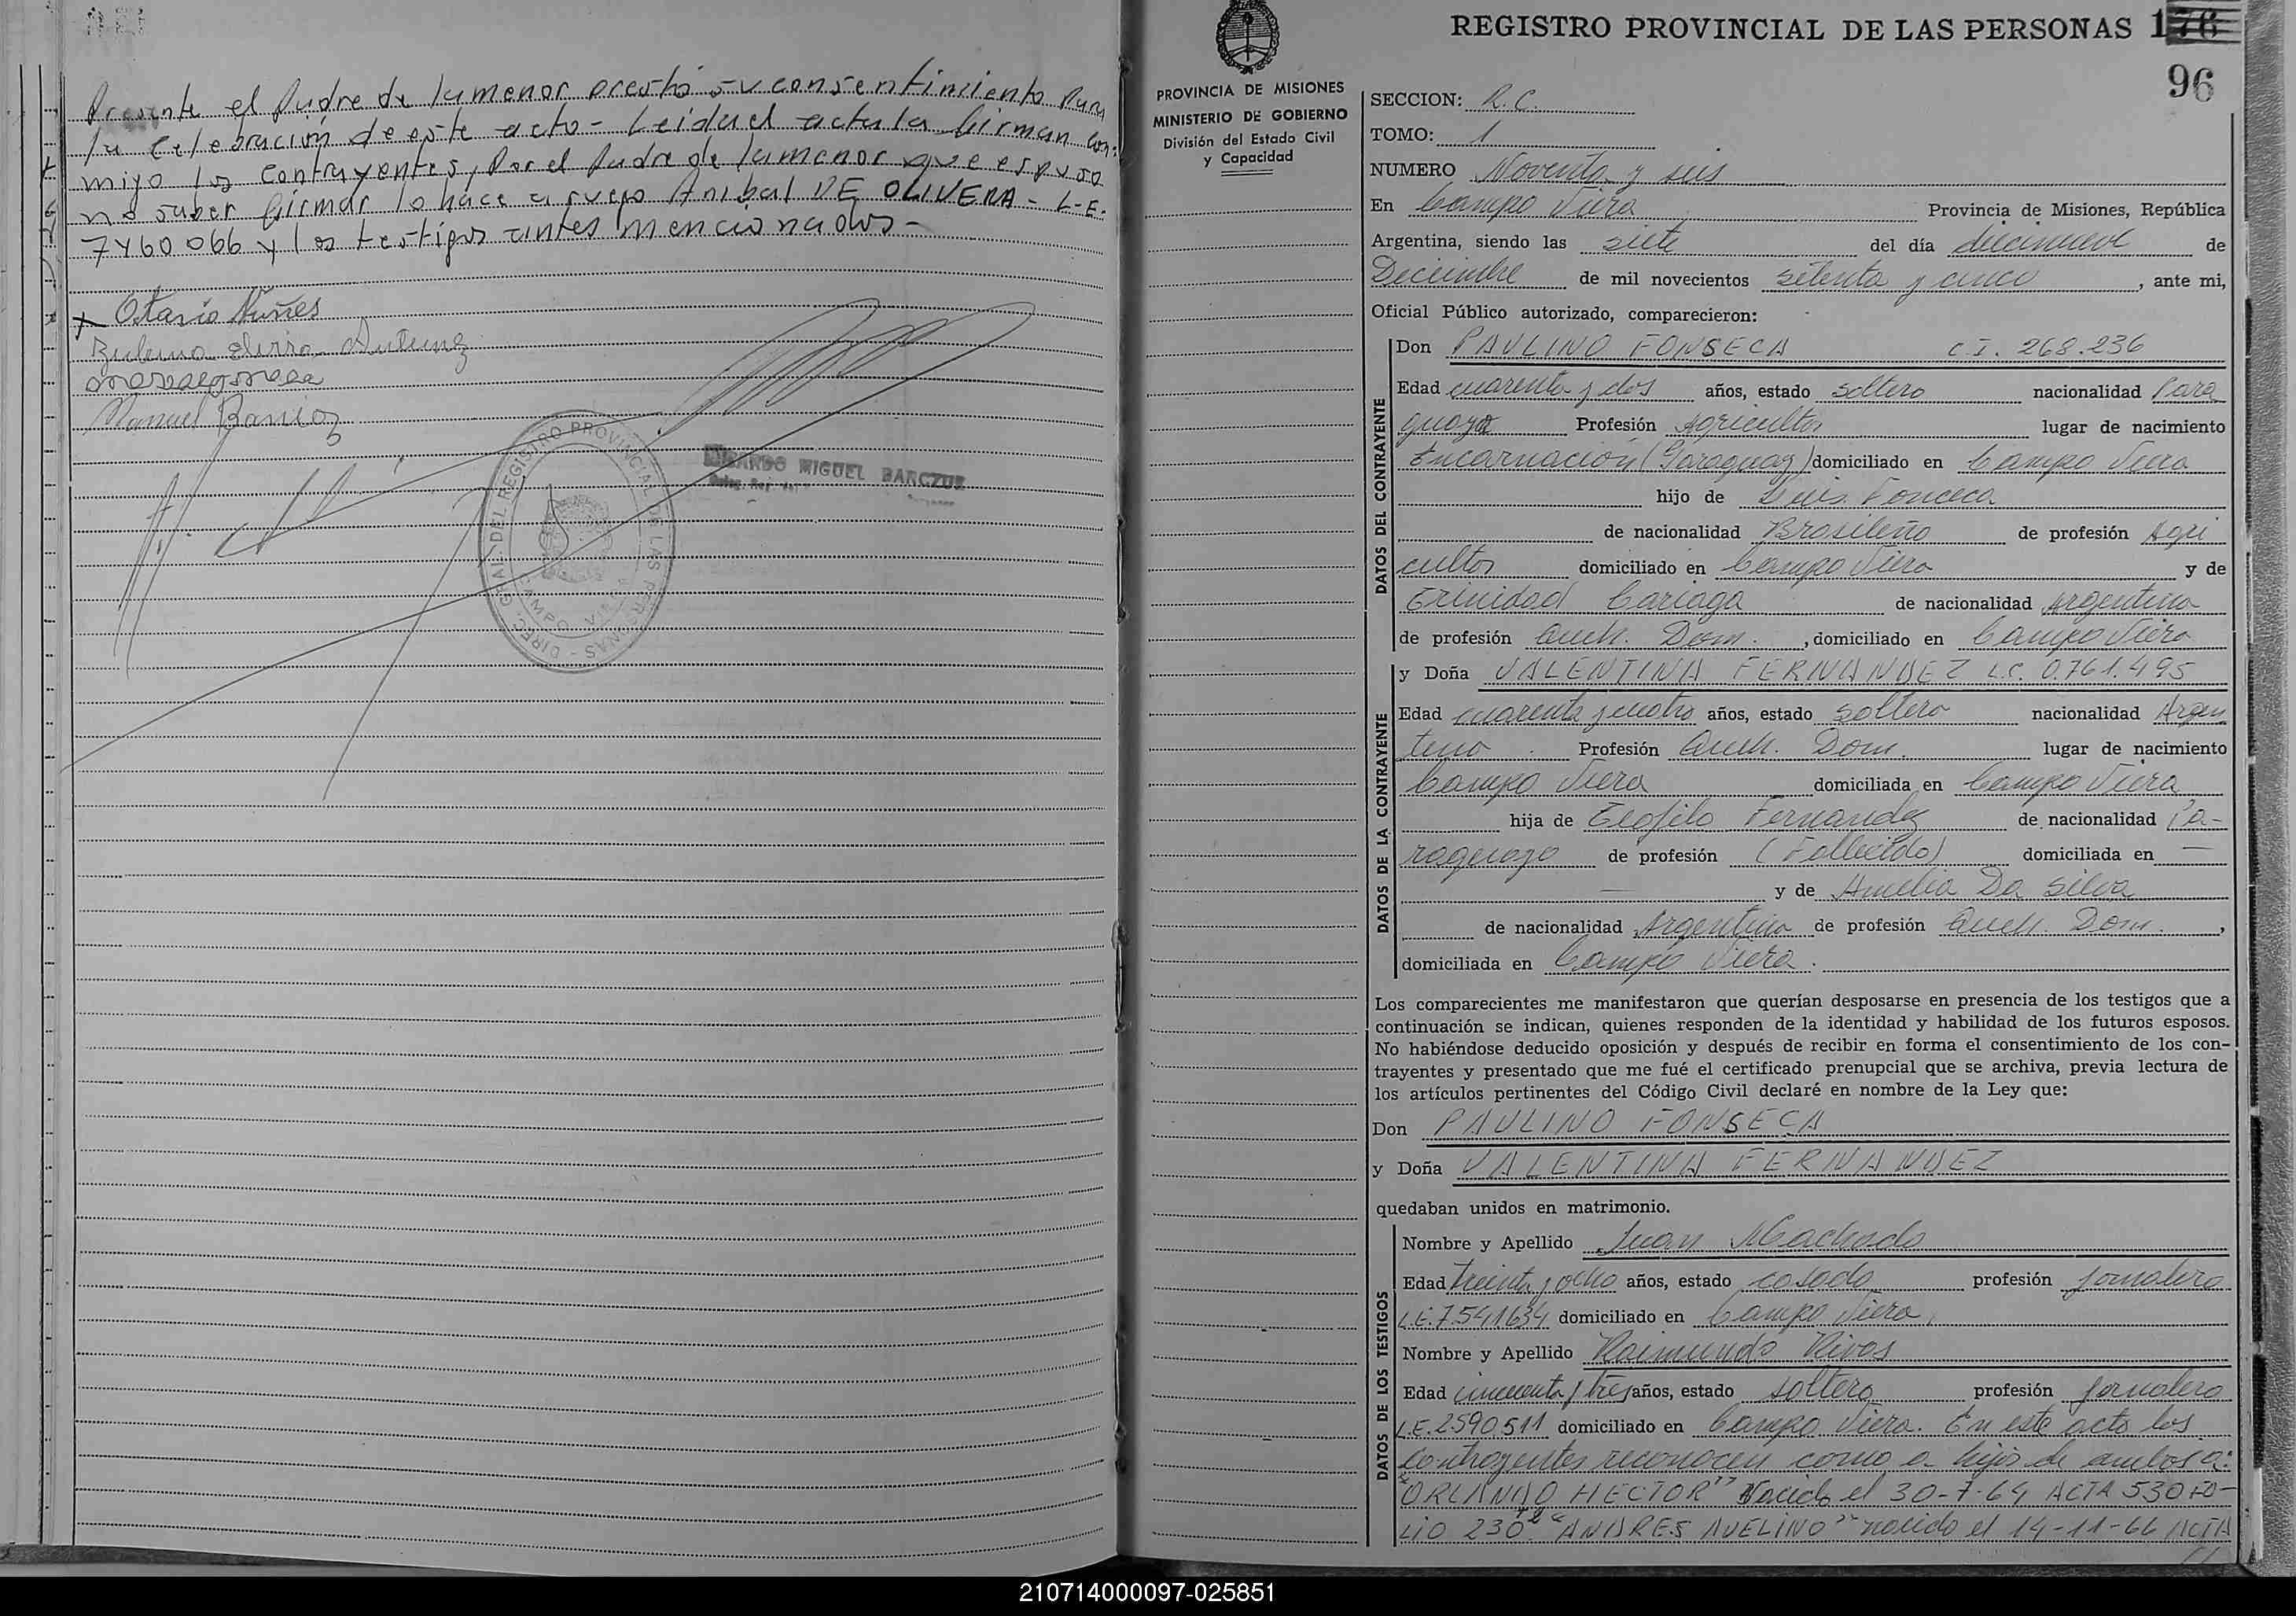 Presente el Padre de la menor prestó su consentimiento Para
la Celebración de este acto - Leida el acta la firman con-
migo los Contrayentes, Por el Padre de la menor que espuso
no saber firmar lo hace a ruego Anibal DE OLIVERA - L-E.
7460066 y los testigos antes mencionados -
Otario Nuñes
Zulema Elvira Antunez
Manuel Barrios
DIREC. GRAL. DEL REGISTRO PROVINCIAL DE LAS PERSONAS -
CAMPO VIERA
MIGUEL BARCZUK
PROVINCIA DE MISIONES
MINISTERIO DE GOBIERNO
División del Estado Civil
y Capacidad
REGISTRO PROVINCIAL DE LAS PERSONAS 176
96
SECCION: R.C.
TOMO: 1
NUMERO Noventa y seis
En Campo Viera Provincia de Misiones, República
Argentina, siendo las siete del día diecinueve de
Diciembre de mil novecientos setenta y cinco, ante mi,
Oficial Público autorizado, comparecieron:
DATOS DEL CONTRAYENTE
Don PAULINO FONSECA C.I. 268.236
Edad cuarenta y dos años, estado soltero nacionalidad Para
guaya Profesión Agricultor lugar de nacimiento
Encarnación (Paraguay) domiciliado en Campo Viera
hijo de Luis Fonceca
de nacionalidad Brasileño de profesión Agri
cultor domiciliado en Campo Viera y de
Trinidad Cariaga de nacionalidad Argentina
de profesión Queh. Dom. , domiciliado en Campo Viera
DATOS DE LA CONTRAYENTE
y Doña VALENTINA FERNANDEZ L.C. 0.761.495
Edad cuarenta y cuatro años, estado soltera nacionalidad Argen
tina Profesión Queh. Dom. lugar de nacimiento
Campo Viera domiciliada en Campo Viera
hija de Teofilo Fernandez de nacionalidad Pa-
raguayo de profesión (Fallecido) domiciliada en —
— y de Amelia Da Silva
de nacionalidad Argentina de profesión Queh. Dom. ,
domiciliada en Campo Viera.
Los comparecientes me manifestaron que querían desposarse en presencia de los testigos que a
continuación se indican, quienes responden de la identidad y habilidad de los futuros esposos.
No habiéndose deducido oposición y después de recibir en forma el consentimiento de los con-
trayentes y presentado que me fué el certificado prenupcial que se archiva, previa lectura de
los artículos pertinentes del Código Civil declaré en nombre de la Ley que:
Don PAULINO FONSECA
y Doña VALENTINA FERNANDEZ
quedaban unidos en matrimonio.
DATOS DE LOS TESTIGOS
Nombre y Apellido Juan Machado
Edad treinta y ocho años, estado casado profesión jornalero
L.E. 7.541634 domiciliado en Campo Viera,
Nombre y Apellido Raimundo Rivas
Edad cincuenta y tres años, estado soltero profesión jornalero
L.E. 2590511 domiciliado en Campo Viera. En este acto los
Contrayentes reconocen como a hijos de ambos a:
"ORLANDO HECTOR" Nacido el 30-7-64 ACTA 530 FO-
LIO 230. "ANDRES AVELINO" nacido el 14-11-66 ACTA
210714000097-025851